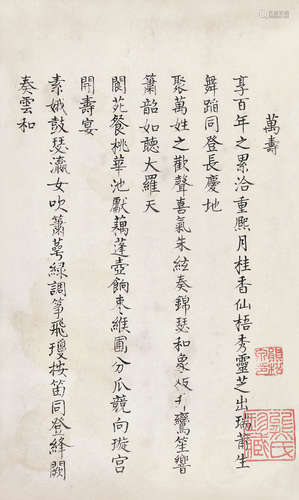 萬壽
享百年之累洽重熙月桂香仙梧秀靈芝出瑞萐生
舞蹈同登長慶地
聚萬姓之歡聲喜氣朱絃奏錦瑟和象板 鸞笙響
簫韶如聽大羅天
閬苑餐桃華池獻藕蓬壺餉棗緱圃分瓜競向璇宮
開壽宴
素娥鼓瑟瀛女吹簫萼綠調箏飛瓊按笛同登絳闕
奏雲和